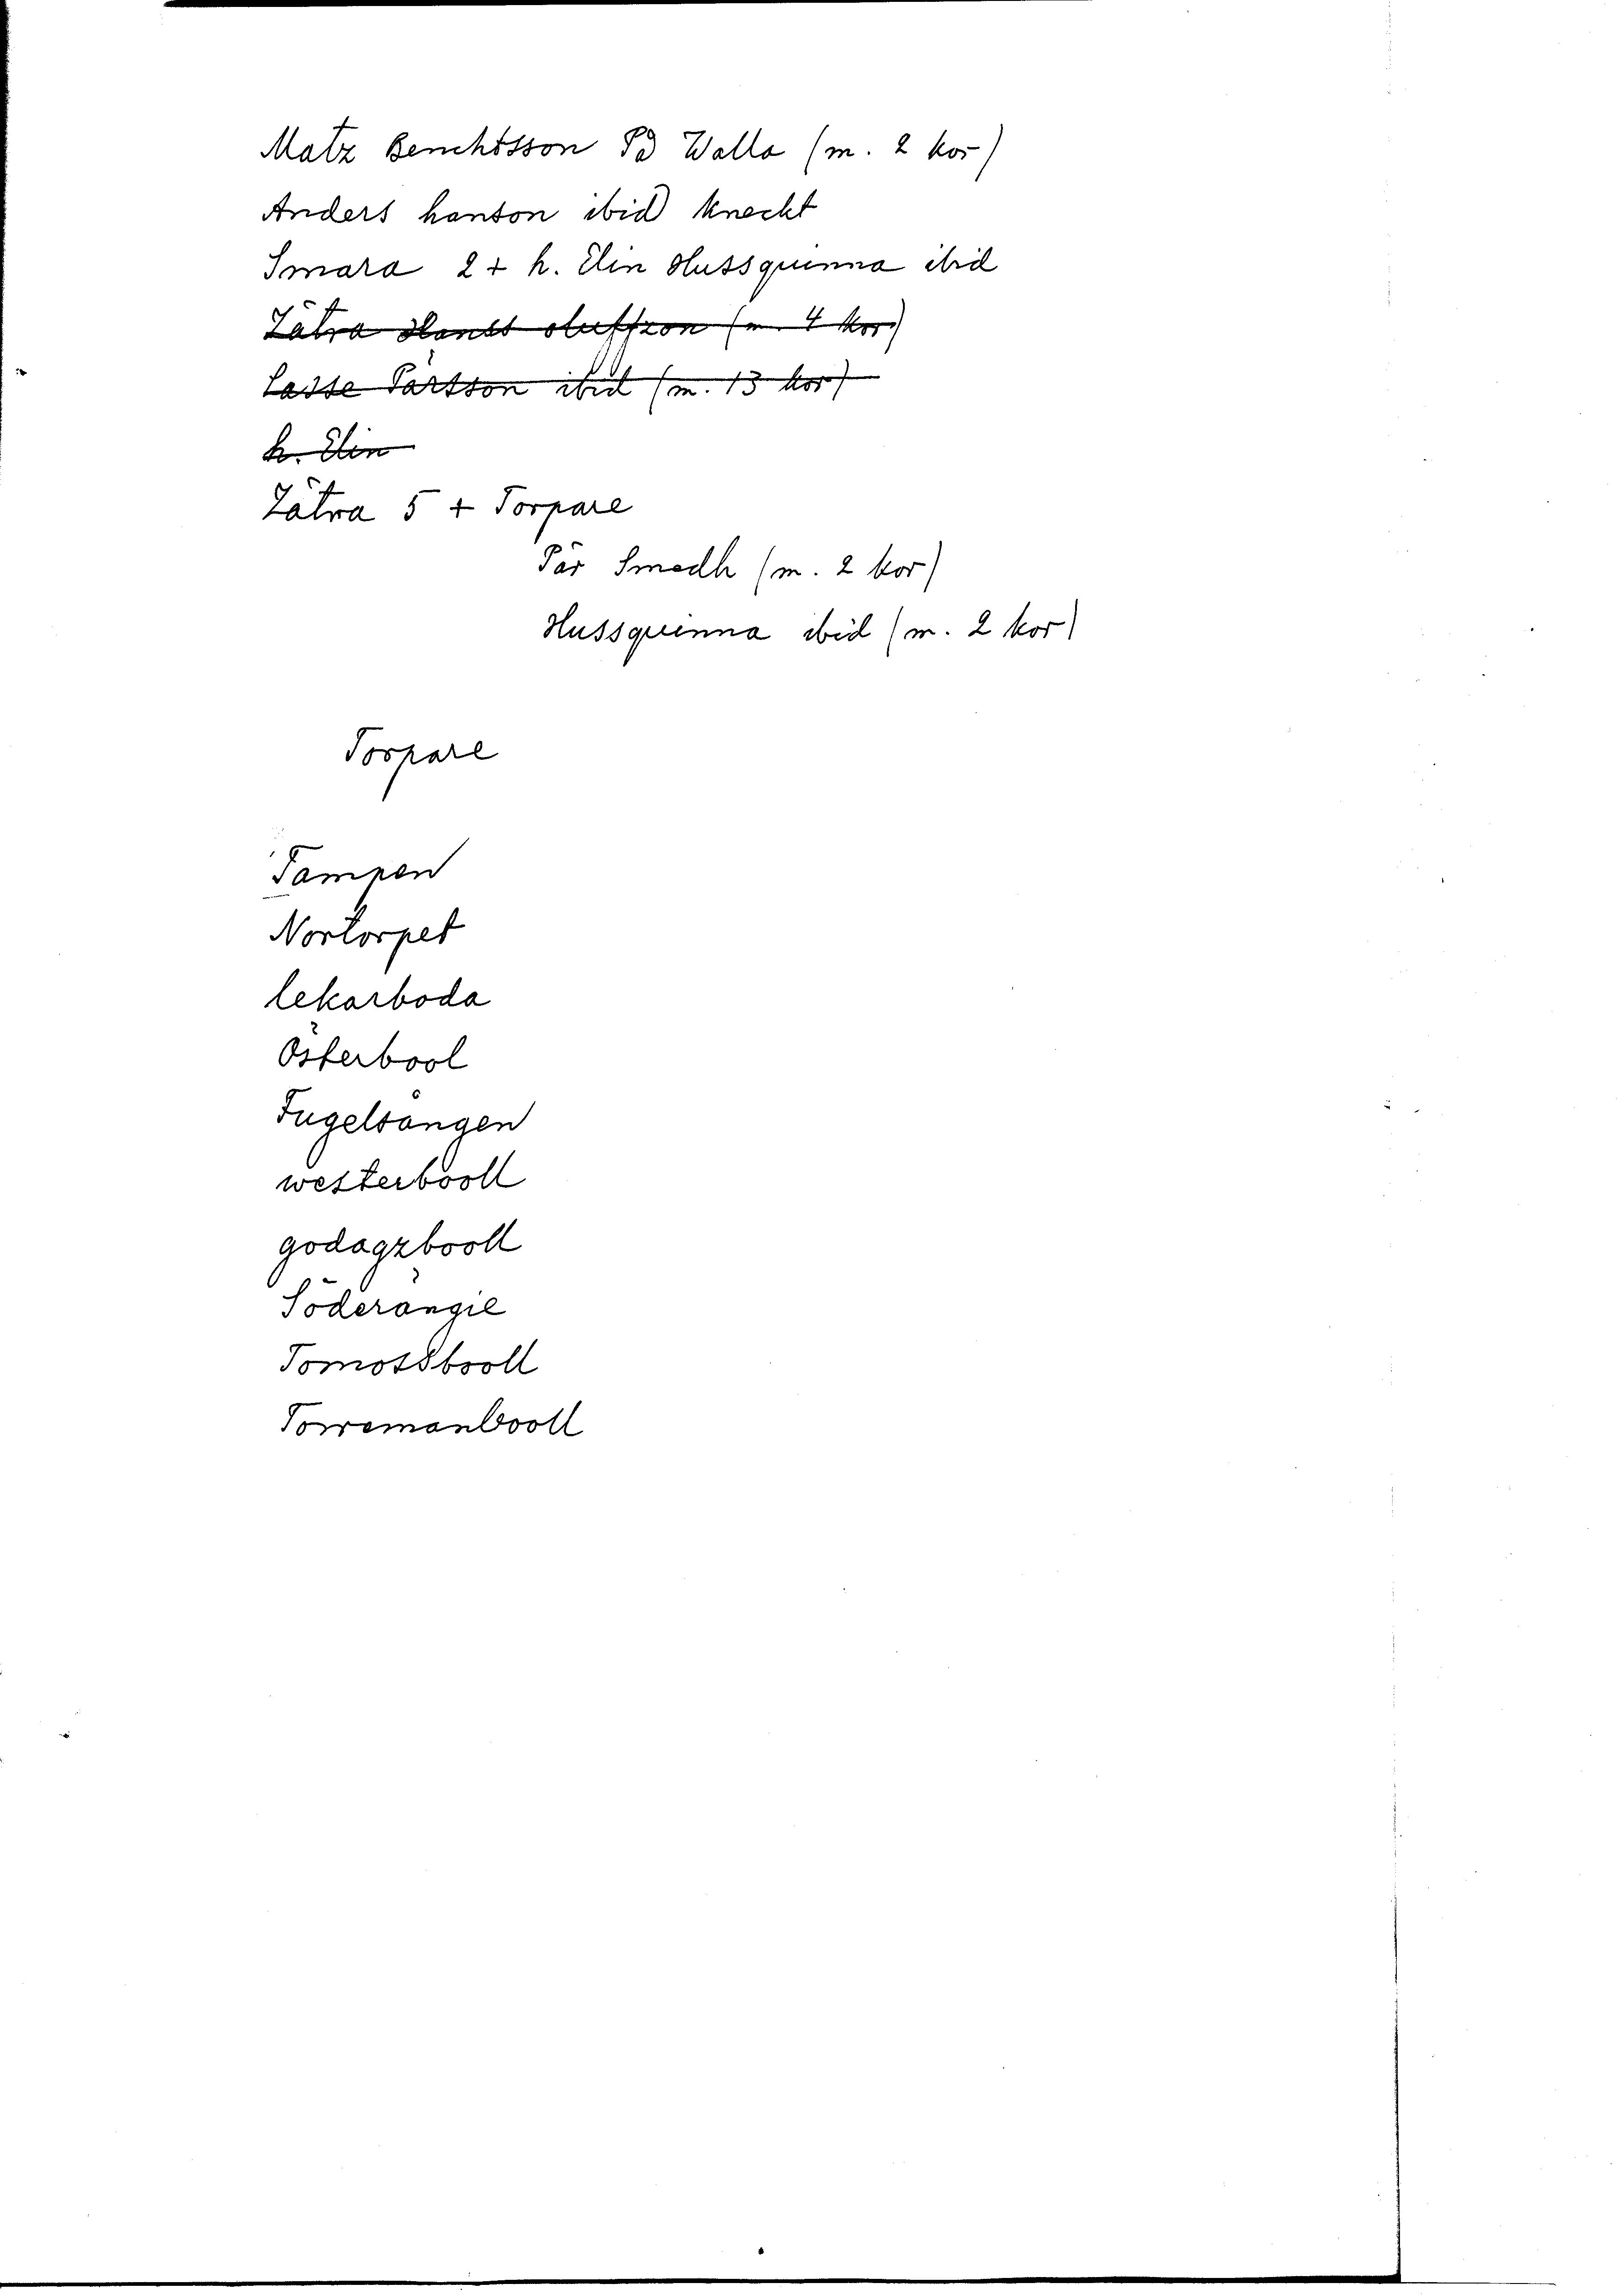 Matz Benchtsson På Walla (m. 2 kor)
Anders hanson ibid knecht
Smara 2 + h. Elin Hussquinna ibid
Zätra oluffzon (m. 4 kor)
Lasse Pärsson ibid (m. 13 kor)
h. Elin
Zätra 5 + Torpare
Pär Smedh (m. 2 kor)
Hussquinna ibid (m. 2 kor)
Torpare
Tampen
Nortorpet
lekarboda
Österbool
Fugelsången
westerbooll
godagzbooll
Söderängie
Tomosbooll